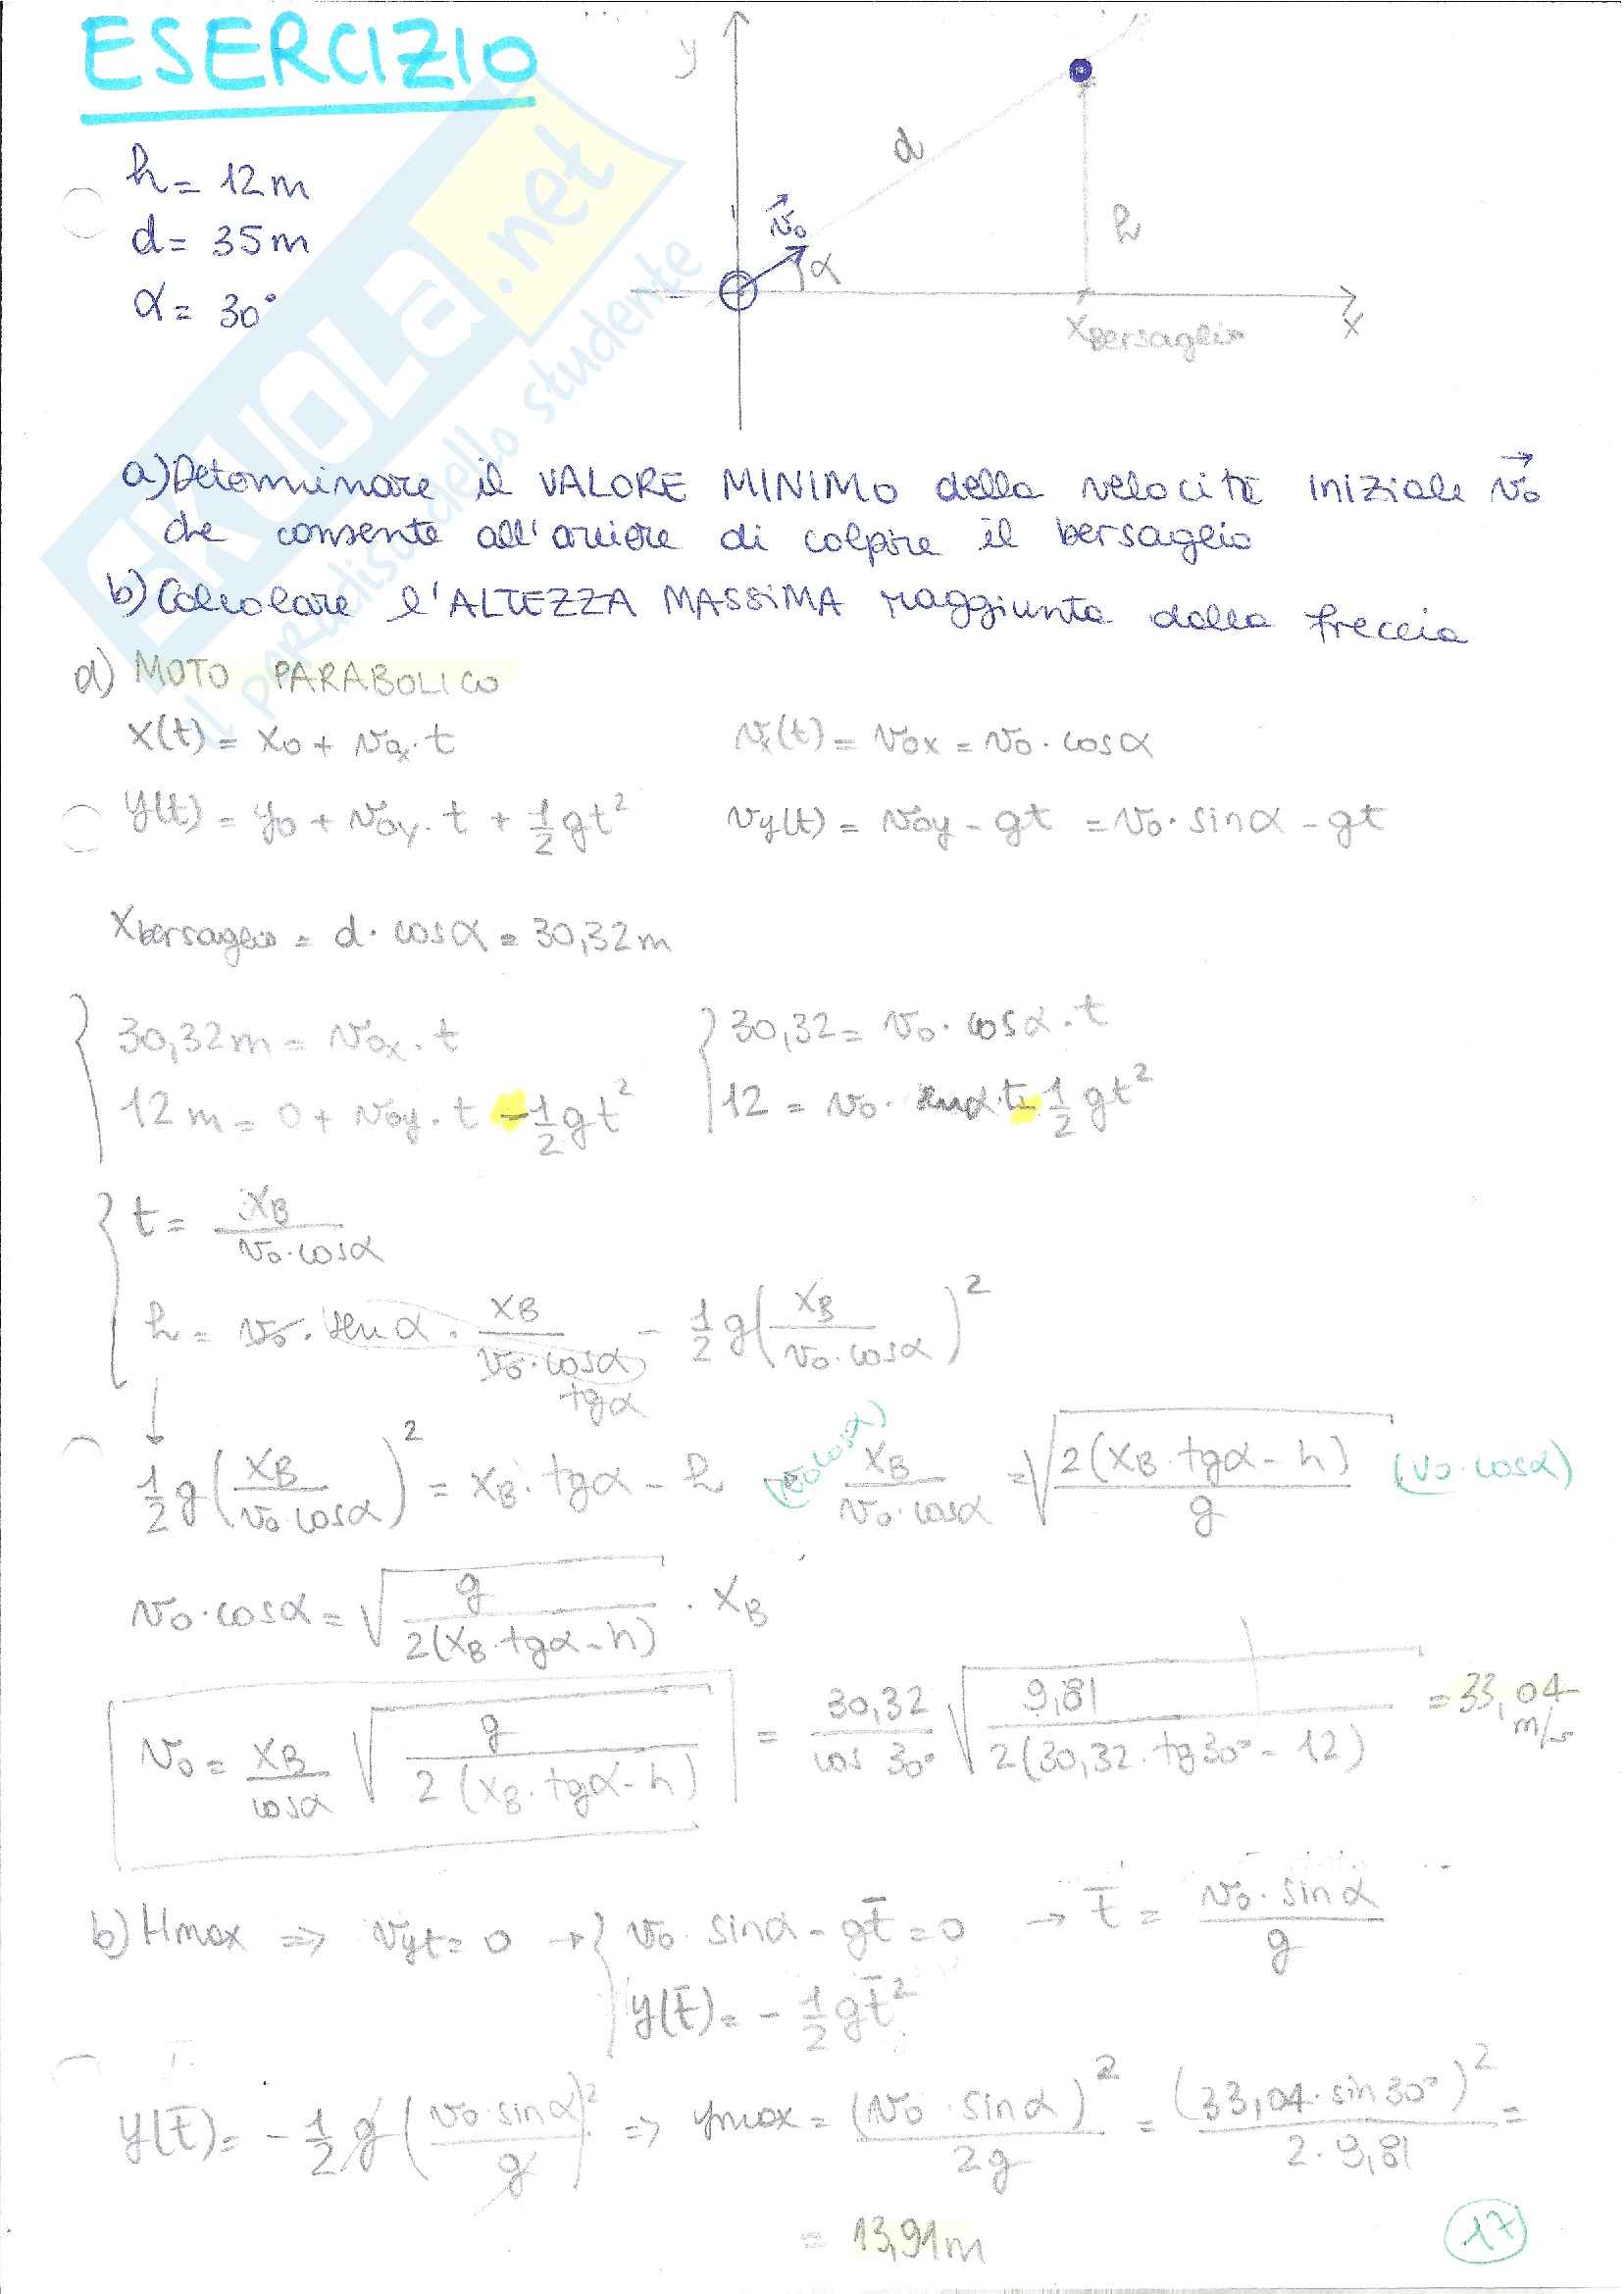 ESERCIZIO
h = 12 m
d = 35 m
α = 30°
y
d
v⃗₀
α
h
x bersaglio
x
SKUOLA.net
il paradiso dello studente
a) Determinare il VALORE MINIMO della velocità INIZIALE v⃗₀
che consente all'arciere di colpire il bersaglio
b) Calcolare l'ALTEZZA MASSIMA raggiunta dalla freccia
a) MOTO PARABOLICO
x(t) = x₀ + v₀ₓ·t    vₓ(t) = v₀ₓ = v₀·cosα
y(t) = y₀ + v₀y·t + 1/2 gt²    vy(t) = v₀y - gt = v₀·sinα - gt
x bersaglio = d·cosα = 30,32 m
{ 30,32 m = v₀ₓ·t    { 30,32 = v₀·cosα·t
12 m = 0 + v₀y·t - 1/2 gt²    12 = v₀·senα t - 1/2 gt²
{ t = xB / (v₀·cosα)
h = v₀·senα · xB / (v₀·cosα) - 1/2 g (xB / (v₀·cosα))²
tgα
↓
1/2 g (xB / (v₀ cosα))² = xB·tgα - h    (v₀cosα) · xB / (v₀·cosα) = √(2(xB·tgα - h) / g) (v₀·cosα)
v₀·cosα = √(g / (2(xB·tgα - h))) · xB
v₀ = xB / cosα √(g / (2(xB·tgα - h))) = 30,32 / cos 30° √(9,81 / (2(30,32·tg30° - 12))) = 33,04 m/s
b) Hmax => vyt = 0 → { v₀·sinα - gt̄ = 0 → t̄ = v₀·sinα / g
y(t̄) = - 1/2 gt̄²
y(t̄) = - 1/2 g (v₀·sinα / g)² => ymax = (v₀·sinα)² / 2g = (33,04·sin30°)² / (2·9,81) =
= 13,91 m
17